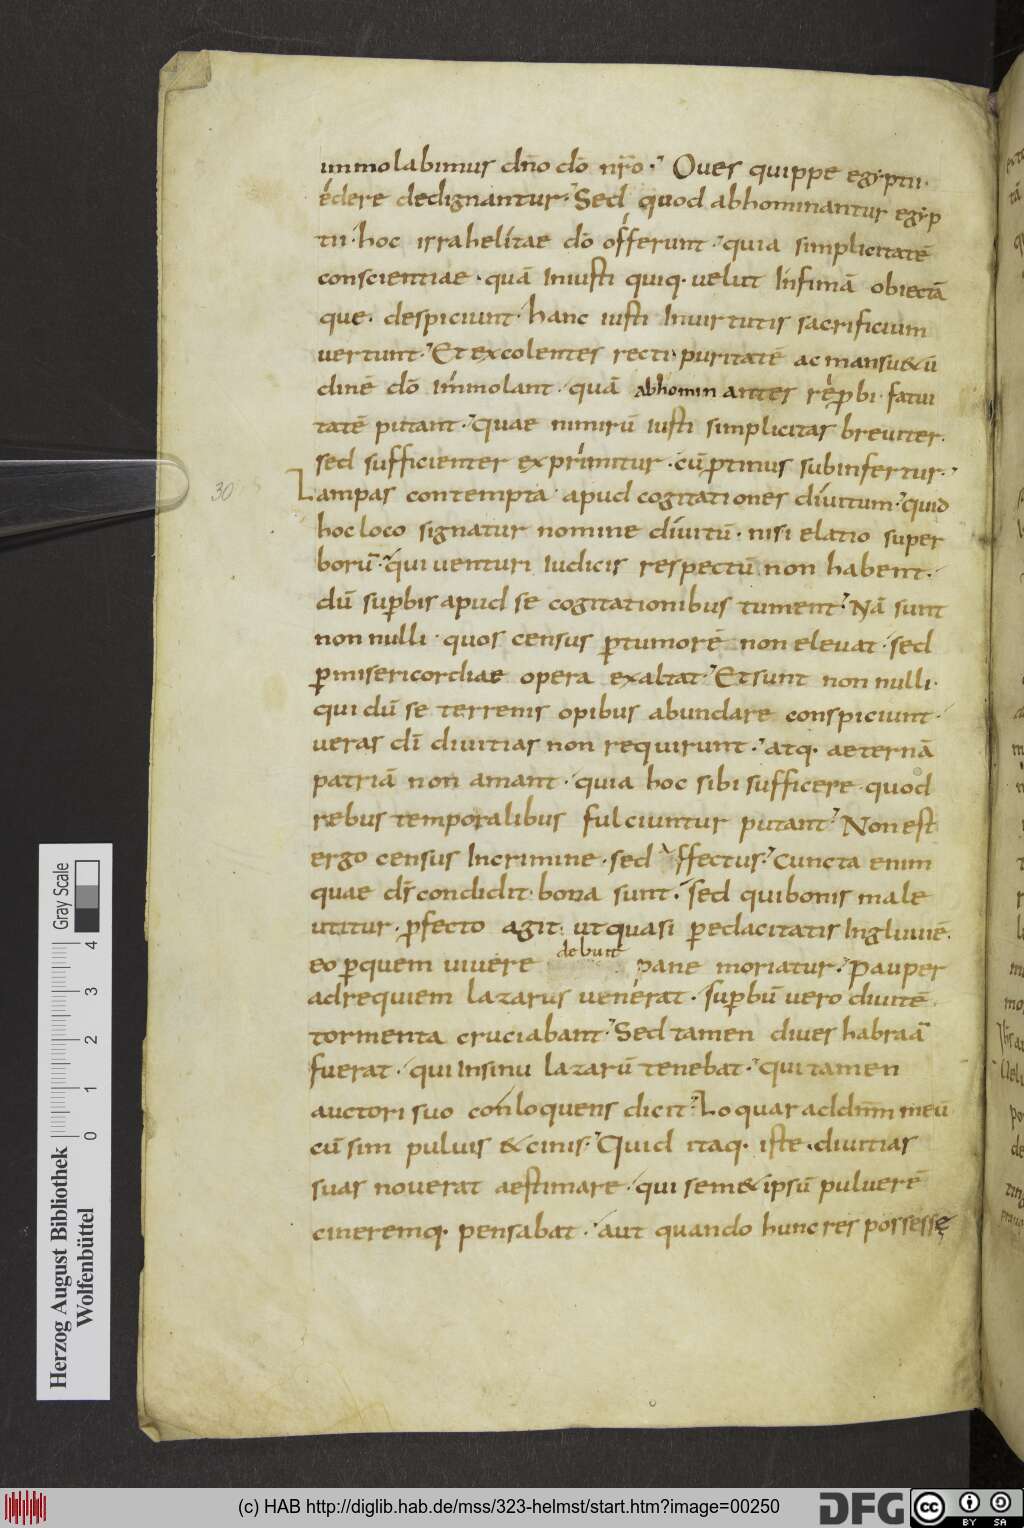 immolabimus dño dō nr̄o· Oues quippe egyptii·
edere dedignantur· Sed quod abhominantur egyp
tii· hoc israhelitae dō offerunt· quia simplicitatē
conscientiae· quā iniusti quiq· uelut infimā obiectā
que· despiciunt· hanc iusti inuirtutis sacrificium
uertunt· Et excolentes recti puritatē ac mansu&ū
dinē dō immolant· quā abhominantes reꝓbi· fatui
tatē putant· quae nimirū iusti simplicitas breuiter·
sed sufficienter exprimitur· cū ꝓtinus subinfertur·
30
Lampas contempta apud cogitationes diuitum· quid
hoc loco signatur nomine diuitū· nisi elatio super
borū· qui uenturi iudicis respectū non habent·
dū suꝑbis apud se cogitationibus tument· Nā sunt
non nulli· quos census ꝑtumorē non eleuat· sed
ꝑmisericordiae opera exaltat· Et sunt non nulli·
qui dū se terrenis opibus abundare conspiciunt·
ueras dī diuitias non requirunt· atq· aeternā
patriā non amant· quia hoc sibi sufficere quod
rebus temporalibus fulciuntur putant· Non est
ergo census incrimine· sed ffectus· Cuncta enim
quae dš condidit bona sunt· sed quibonis male
utitur· ꝓfecto agit· ut quasi ꝑ edacitatis ingluuiē·
eo ꝑquem uiuere debunt pane moriatur· Pauper
adrequiem lazarus uenerat· suꝑbū uero diuitē
tormenta cruciabant· Sed tamen diues habraā
fuerat· qui insinu lazarū tenebat· qui tamen
auctori suo conloquens dicit· Loquar addn̄m meū
cū sim puluis & cinis· Quid itaq· iste· diuitias
suas nouerat aestimare· qui sem&ipsū puluerē
cineremq· pensabat· aut quando hunc res possessę
Herzog August Bibliothek
Wolfenbüttel
Gray Scale
0 1 2 3 4
(c) HAB http://diglib.hab.de/mss/323-helmst/start.htm?image=00250
DFG
cc BY SA